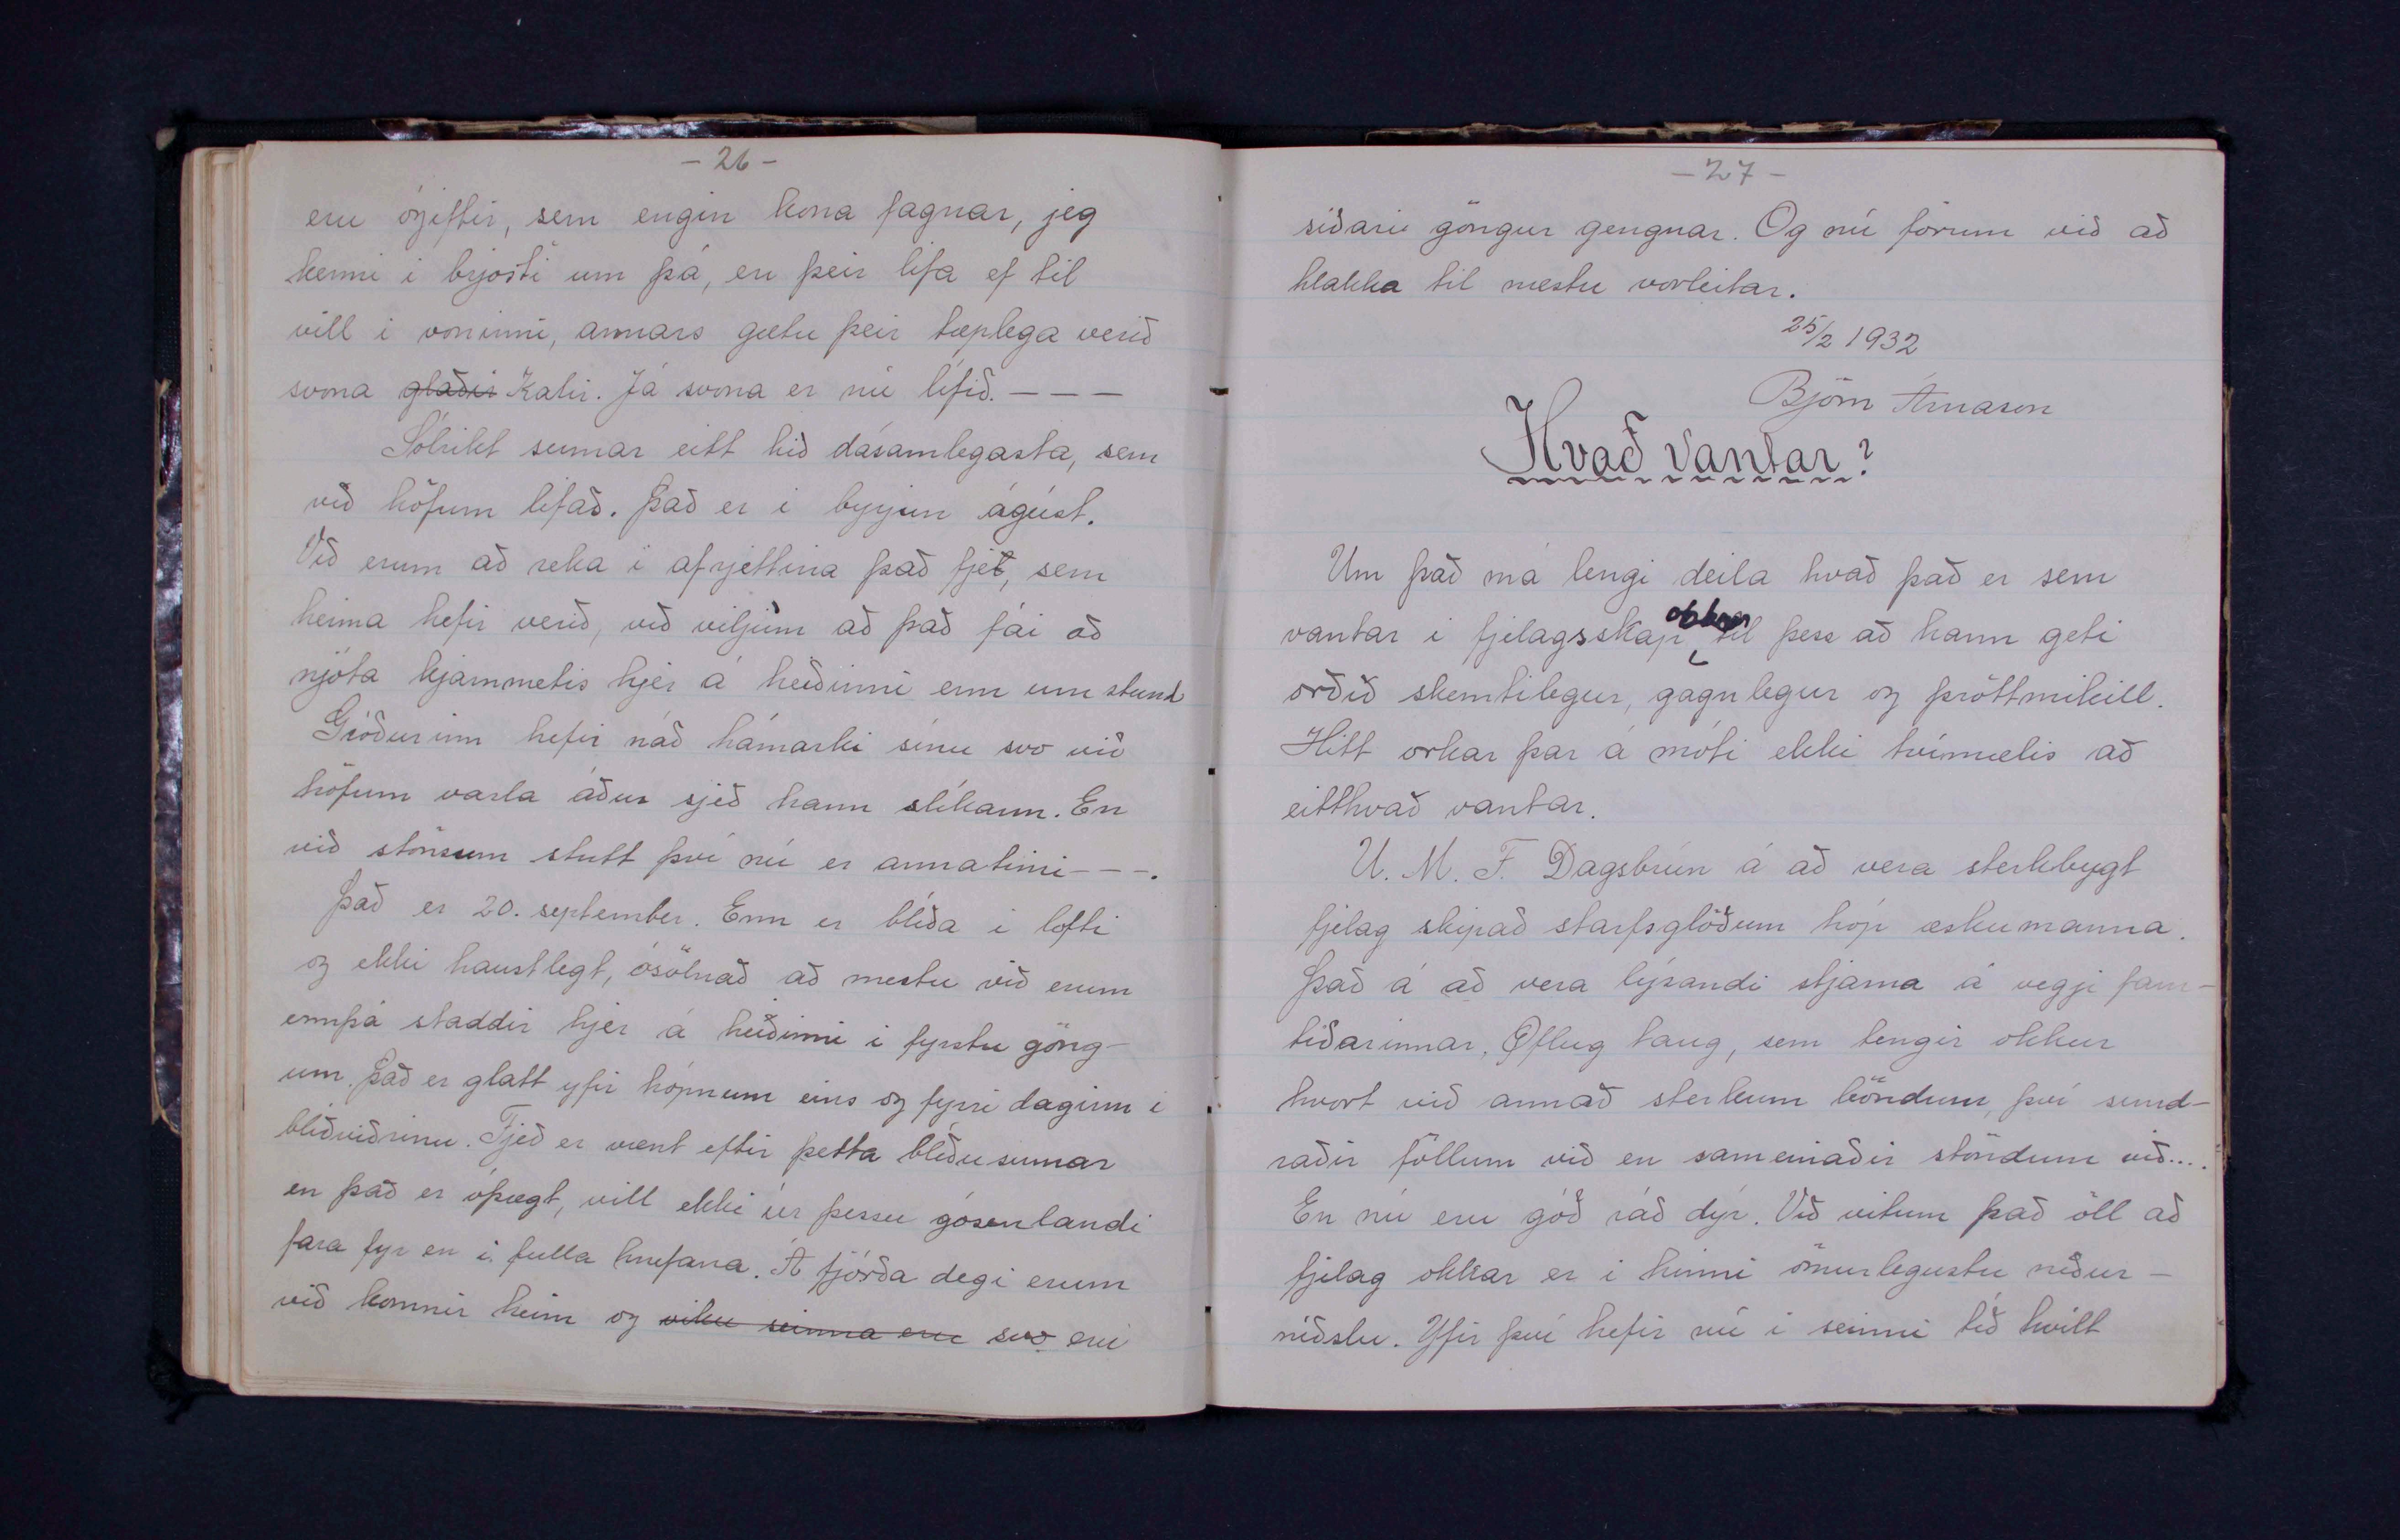 - 26 -
eru ógiftir, sem engin kona fagnar, jeg
kenni i brjósti um þá, en þeir lifa ef til
vill i voninni, annars gætu þeir tæplega verið
svona glaðir Katir. Já svona er nú lífið. - - -
Sólrikt sumar eitt hið dásamlegasta, sem
við höfum lifað. Það er i byrjun ágúst.
Við erum að reka i afrjettina það fje, sem
heima hefir verið, við viljum að það fái að
njóta kjarnmetis hjer á heiðinni enn um stund
Gróðurinn hefir náð hámarki sínu svo við
höfum varla áður sjeð hann slíkann. En
við stönsum stutt því nú er annatími - - -.
Það er 20. september. Enn er blíða i lofti
og ekki haustlegt, ósölnað að mestu við erum
ennþá staddir hjer á heiðinni i fyrstu göng-
um. Það er glatt yfir hópnum eins og fyrri daginn i
blíðviðrinu. Fjeð er vænt eftir þetta blíðusumar
en það er óþægt, vill ekki úr þessu gósenlandi
fara fyr en i fulla hnefana. Á fjórða degi erum
við komnir heim og viku seinna eru svo eru
- 27 -
siðari göngur gengnar. Og nú förum við að
hlakka til næstu vorleitar.
25/2 1932
Björn Árnason
Hvað vantar?
Um það má lengi deila hvað það er sem
vantar i fjelagsskap okkar til þess að hann geti
orðið skemtilegur, gagnlegur og þróttmikill.
Hitt orkar þar á móti ekki tvímælis að
eitthvað vantar.
U. M. F. Dagsbrún á að vera sterkbygt
fjelag skipað starfsglöðum hóp æskumanna.
Það á að vera lýsandi stjarna á vegji fram-
tiðarinnar. Öflug taug, sem tengir okkur
hvort við annað sterkum böndum, því sund-
raðir föllum við en sameinaðir stöndum við....
En nú eru góð ráð dýr. Við vitum það öll að
fjelag okkar er i hinni ömurlegustu niður-
níðslu. Yfir því hefir nú i seinni tíð hvílt